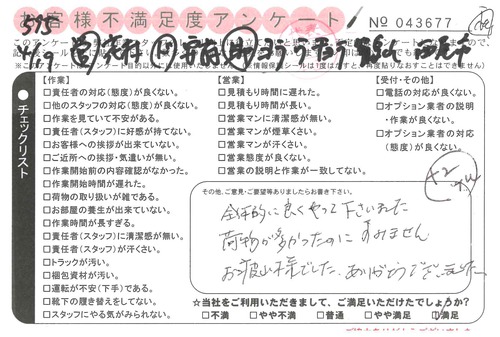 お客様不満足度アンケート
No 043677
595
4/19
チェックリスト
【作業】
□責任者の対応(態度)が良くない。
□他のスタッフの対応(態度)が良くない。
□作業を見ていて不安がある。
□責任者(スタッフ)に好感が持てない。
□お客様への挨拶が出来ていない。
□ご近所への挨拶・気遣いが無い。
□作業開始前の内容確認がなかった。
□作業開始時間が遅れた。
□荷物の取り扱いが雑である。
□お部屋の養生が出来ていない。
□作業時間が長すぎる。
□責任者(スタッフ)に清潔感が無い。
□責任者(スタッフ)が汗くさい。
□トラックが汚い。
□梱包資材が汚い。
□運転が不安(下手)である。
□靴下の履き替えをしてない。
□スタッフにやる気がみられない。
【営業】
□見積もり時間に遅れた。
□見積もり時間が長い。
□営業マンに清潔感が無い。
□営業マンが煙草くさい。
□営業マンが汗くさい。
□営業態度が良くない。
□営業の説明と作業が一致してない。
【受付・その他】
□電話の対応が良くない。
□オプション業者の説明
・作業が良くない。
□オプション業者の対応
(態度)が良くない。
その他、ご意見・ご要望等ありましたらお書き下さい。
全体的に良くやって下さいました
荷物が多かったのにすみません
お疲れ様でした。ありがとうございました。
☆当社をご利用いただきまして、ご満足いただけたでしょうか?
□不満 □やや不満 □普通 □やや満足 □満足